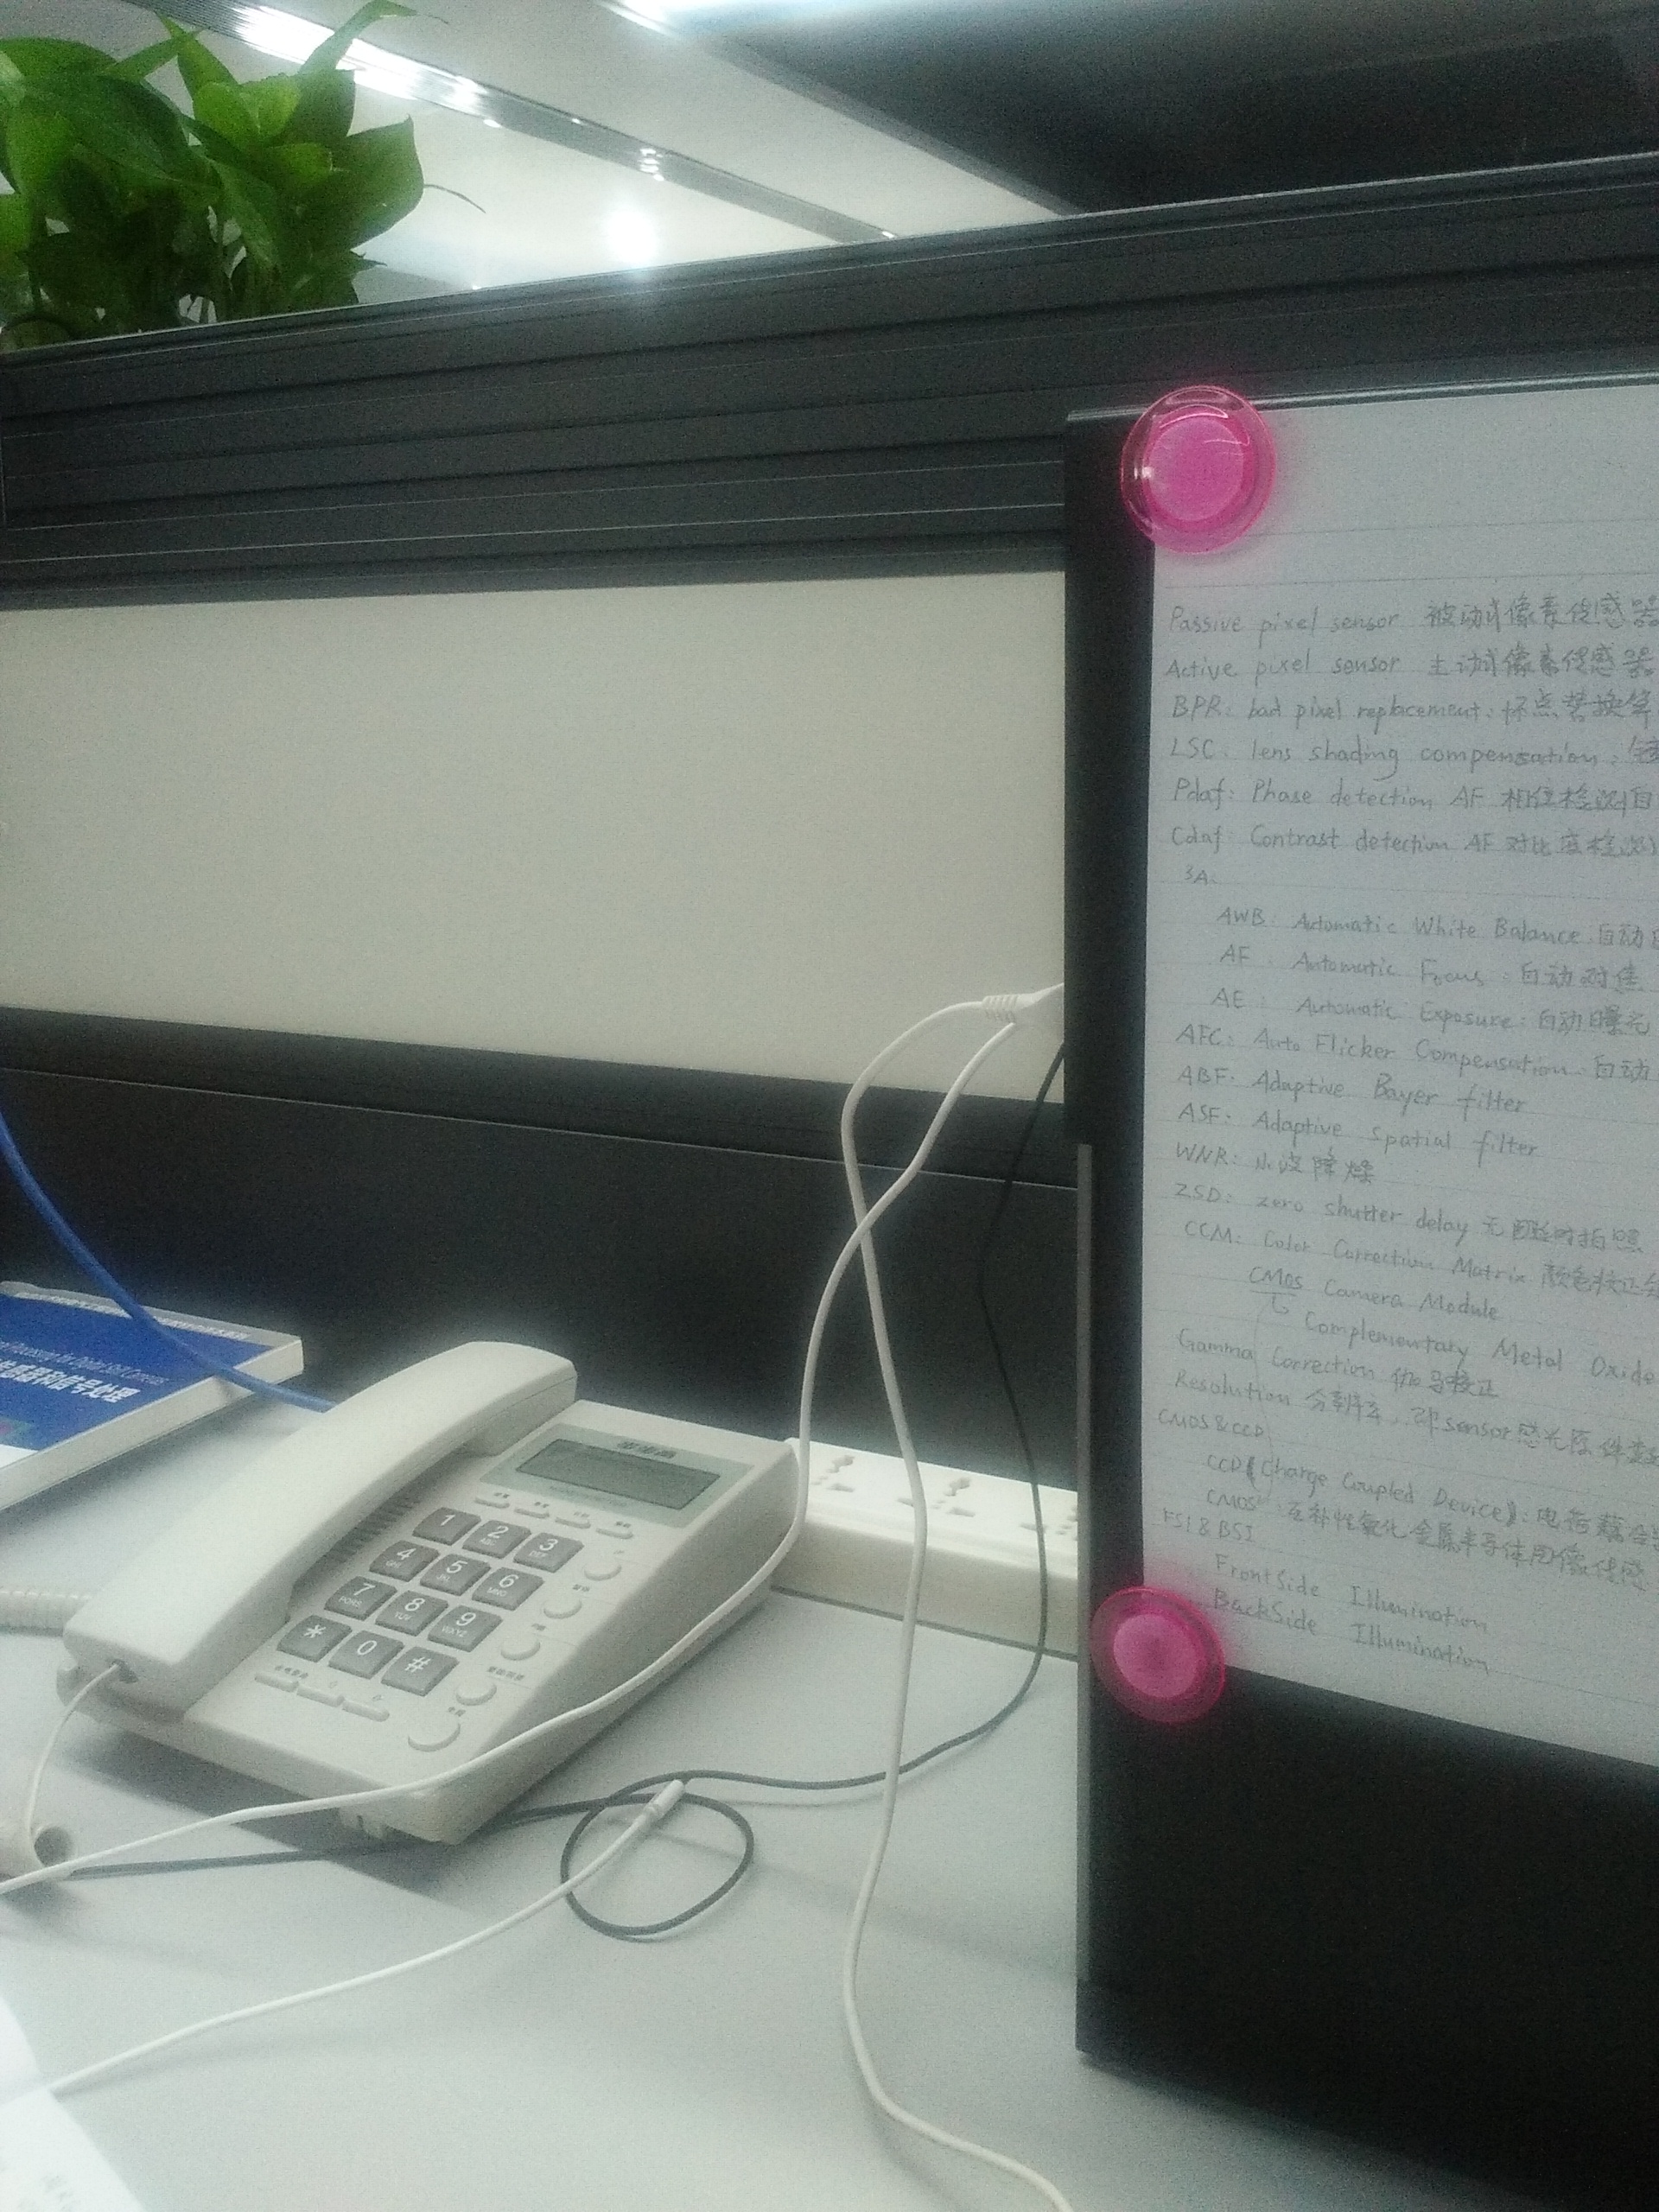 Passive pixel sensor 被动式像素传感器
Active pixel sensor 主动式像素传感器
BPR: bad pixel replacement: 坏点替换算
LSC: lens shading compensation:
Pdaf: Phase detection AF 相位检测自
Cdaf: Contrast detection AF 对比度检测
3A:
AWB: Automatic White Balance 自动白
AF: Automatic Focus: 自动对焦
AE: Automatic Exposure: 自动曝光
AFC: Auto Flicker Compensation: 自动
ABF: Adaptive Bayer filter
ASF: Adaptive spatial filter
WNR: 小波降燥
ZSD: zero shutter delay 无延时拍照
CCM: Color Correction Matrix 颜色校正
CMOS Camera Module
Complementary Metal Oxide
Gamma Correction 伽马校正
Resolution 分辨率, 即sensor感光原件
CMOS & CCD
CCD (Charge Coupled Device): 电荷藕合
CMOS: 互补性氧化金属半导体图像传感
FSI & BSI
FrontSide Illumination
BackSide Illumination
1 2 3
4 5 6
7 8 9
* 0 #